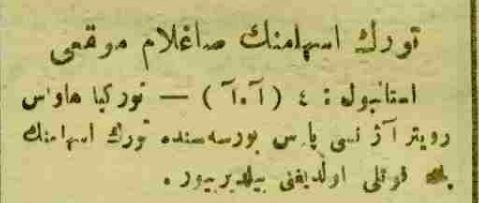 تورك اسهامنك صاغلام موقعی
استانبول : ٤ ( آ ٠ آ ) — توركیا هاواس
رویتر آژ نسی پا س بورسه سنده تورك اسهامنك
قوتلی اولدیغنی بیلدیرییور .